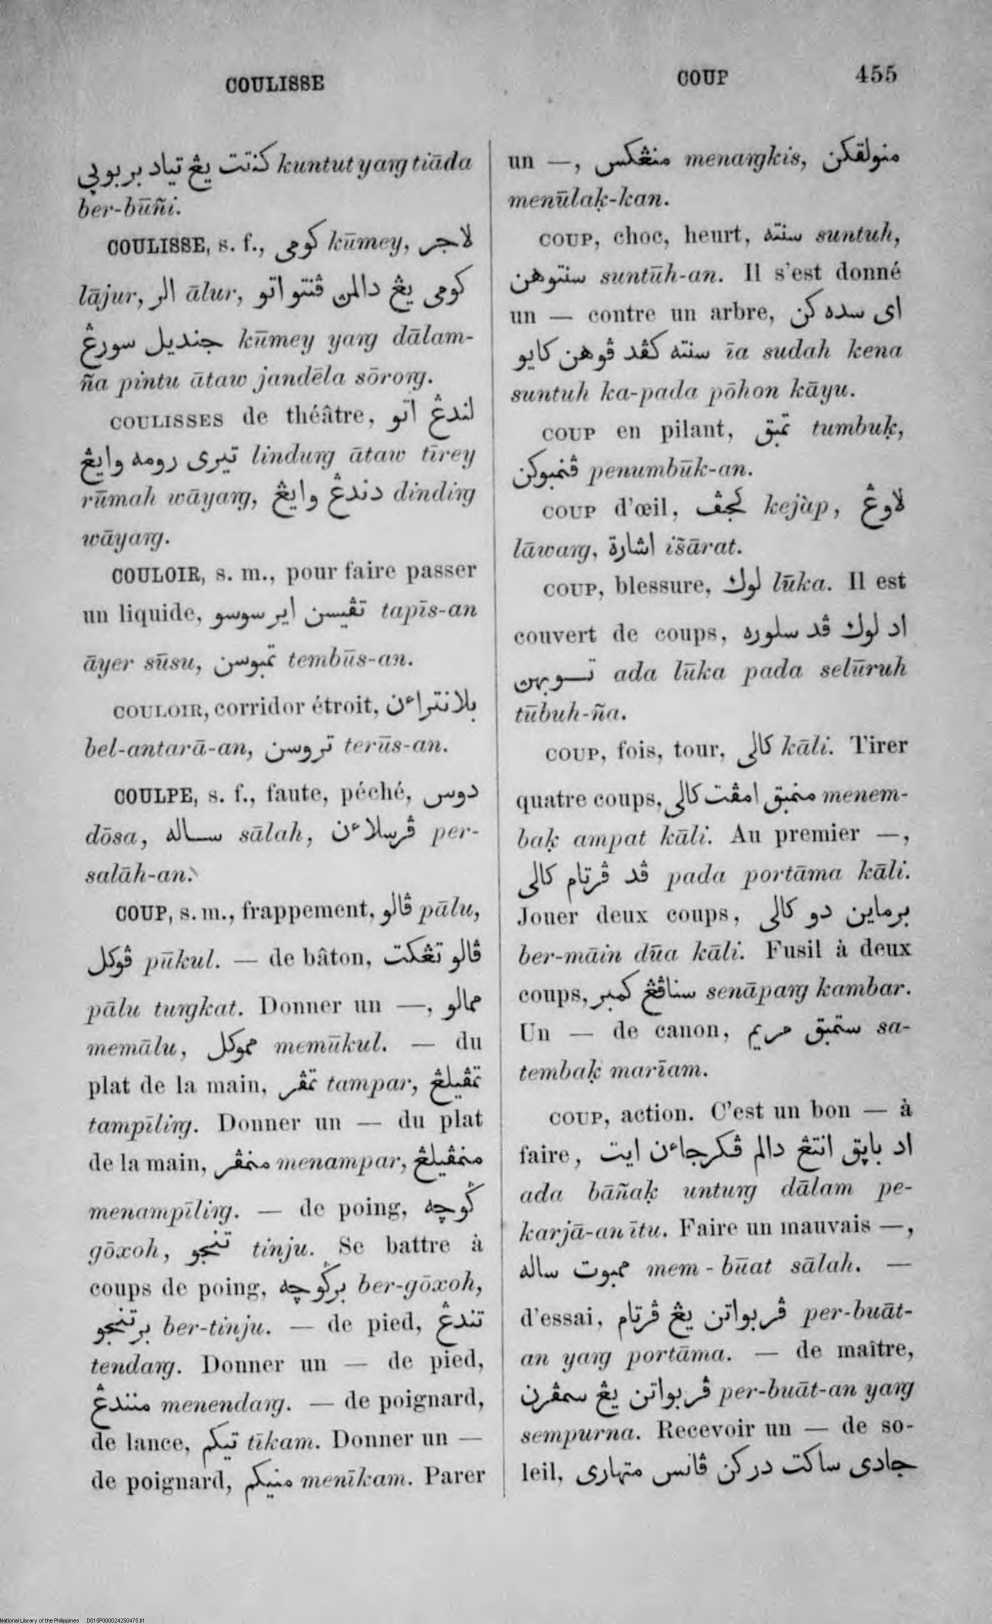 COULISSE
COUP 455
كنتت يڠ تياد بربوپي kuntut yaŋ tiāda
ber-būñi.
COULISSE, s. f., كومي kūmey, لاجر
lājur, الر ālur, كومي يڠ دالمن ڤنتو اتو
جنديل سورڠ kūmey yaŋ dālam-
ña pintu ātaw jandēla sōroŋ.
COULISSES de théâtre, لندڠ اتو
تيري رومه وايڠ lindurŋ ātaw tīrey
rūmah wāyaŋ, دندڠ وايڠ dindiŋ
wāyaŋ.
COULOIR, s. m., pour faire passer
un liquide, تڤيسن اير سوسو tapīs-an
āyer sūsu, تمبوسن tembūs-an.
COULOIR, corridor étroit, بلانتراءن
bel-antarā-an, تروسن terūs-an.
COULPE, s. f., faute, péché, دوس
dōsa, ساله sālah, ڤرسلاءن per-
salāh-an.
COUP, s. m., frappement, ڤالو pālu,
ڤوكل pūkul. — de bâton, ڤالو تڠكت
pālu tuŋkat. Donner un —, ممالو
memālu, مموكل memūkul. — du
plat de la main, تمڤر tampar, تمڤيلڠ
tampīliŋ. Donner un — du plat
de la main, منمڤر menampar, منمڤيلڠ
menampīliŋ. — de poing, ݢوچه
gōxoh, تنجو tinju. Se battre à
coups de poing, برݢوچه ber-gōxoh,
برتنجو ber-tinju. — de pied, تندڠ
tendaŋ. Donner un — de pied,
منندڠ menendaŋ. — de poignard,
de lance, تيكم tīkam. Donner un —
de poignard, منيكم menīkam. Parer
un —, منڠكس menaŋkis, منولقكن
menūlaḳ-kan.
COUP, choc, heurt, سنته suntuh,
سنتوهن suntūh-an. Il s'est donné
un — contre un arbre, اي سده كن
سنته كڤد ڤوهن كايو īa sudah kena
suntuh ka-pada pōhon kāyu.
COUP en pilant, تمبق tumbuḳ,
ڤنمبوكن penumbūk-an.
COUP d'œil, كجڤ kejàp, لاوڠ
lāwaŋ, اشارة išārat.
COUP, blessure, لوك lūka. Il est
couvert de coups, اد لوك ڤد سلوره
توبهن ada lūka pada selūruh
tūbuh-ña.
COUP, fois, tour, كالي kāli. Tirer
quatre coups, منمبق امڤت كالي menem-
baḳ ampat kāli. Au premier —,
ڤد ڤرتام كالي pada portāma kāli.
Jouer deux coups, برماين دو كالي
ber-māin dūa kāli. Fusil à deux
coups, سناڤڠ كمبر senāpaŋ kambar.
Un — de canon, ستمبق مريم sa-
tembaḳ marīam.
COUP, action. C'est un bon — à
faire, اد باپق انتڠ دالم ڤكرجاءن ايت
ada bāñaḳ untuŋ dālam pe-
karjā-an ītu. Faire un mauvais —,
ممبوت ساله mem-būat sālah. —
d'essai, ڤربواتن يڠ ڤرتام per-buāt-
an yaŋ portāma. — de maître,
ڤربواتن يڠ سمڤرن per-buāt-an yaŋ
sempurna. Recevoir un — de so-
leil, جادي ساكت دركن ڤانس متهاري
National Library of the Philippines